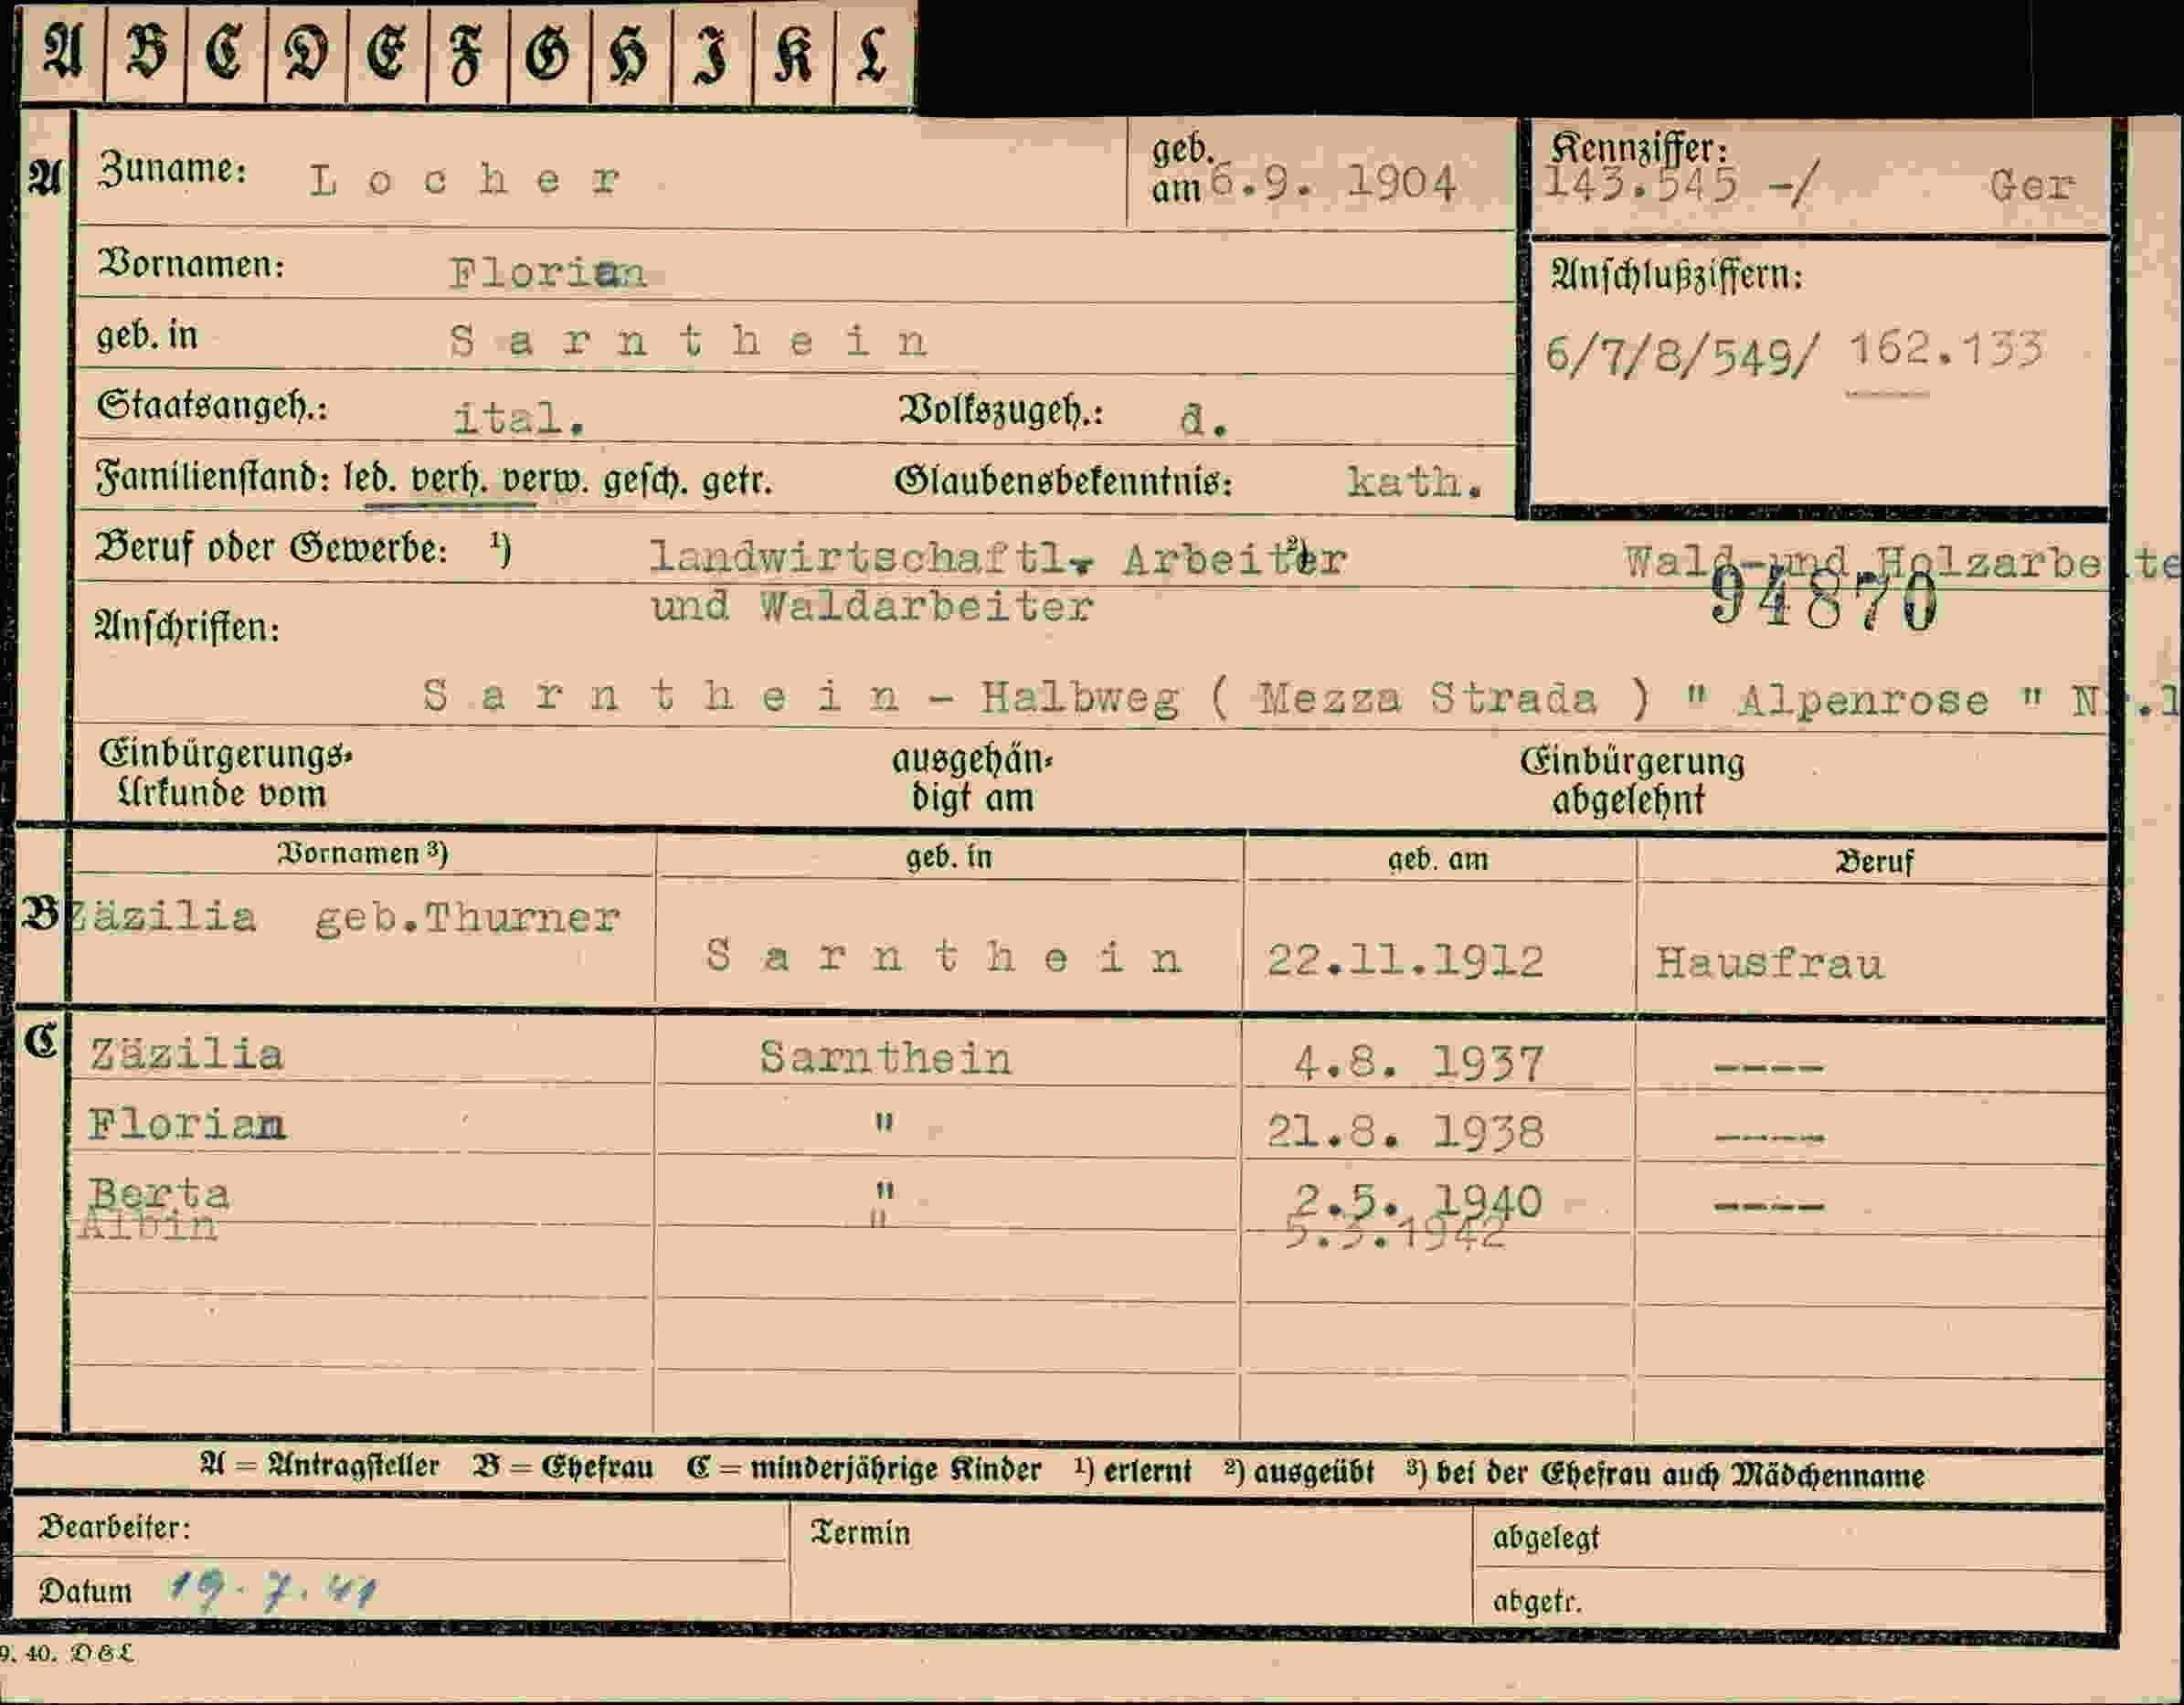 A B C D E F G H I K L
A Zuname: Locher geb. am 6.9. 1904 Kennziffer: 143.545 -/ Ger
Vornamen: Florian Anschlußziffern:
geb. in Sarnthein 6/7/8/549/ 162.133
Staatsangeh.: ital. Volkszugeh.: d.
Familienstand: led. verh. verw. gesch. getr. Glaubensbekenntnis: kath.
Beruf oder Gewerbe: ¹) landwirtschaftl. Arbeiter ²) Wald-und Holzarbeite
und Waldarbeiter 94870
Anschriften:
Sarnthein - Halbweg ( Mezza Strada ) " Alpenrose " Nr.1
Einbürgerungs- ausgehän- Einbürgerung
Urkunde vom digt am abgelehnt
Vornamen ³) geb. in geb. am Beruf
B Zäzilia geb.Thurner
Sarnthein 22.11.1912 Hausfrau
C Zäzilia Sarnthein 4.8. 1937 ----
Florian " 21.8. 1938 ----
Berta " 2.5. 1940 ----
Albin " 5.3.1942
A = Antragsteller B = Ehefrau C = minderjährige Kinder ¹) erlernt ²) ausgeübt ³) bei der Ehefrau auch Mädchenname
Bearbeiter: Termin abgelegt
Datum 19.7.41 abgetr.
9. 40. D&L